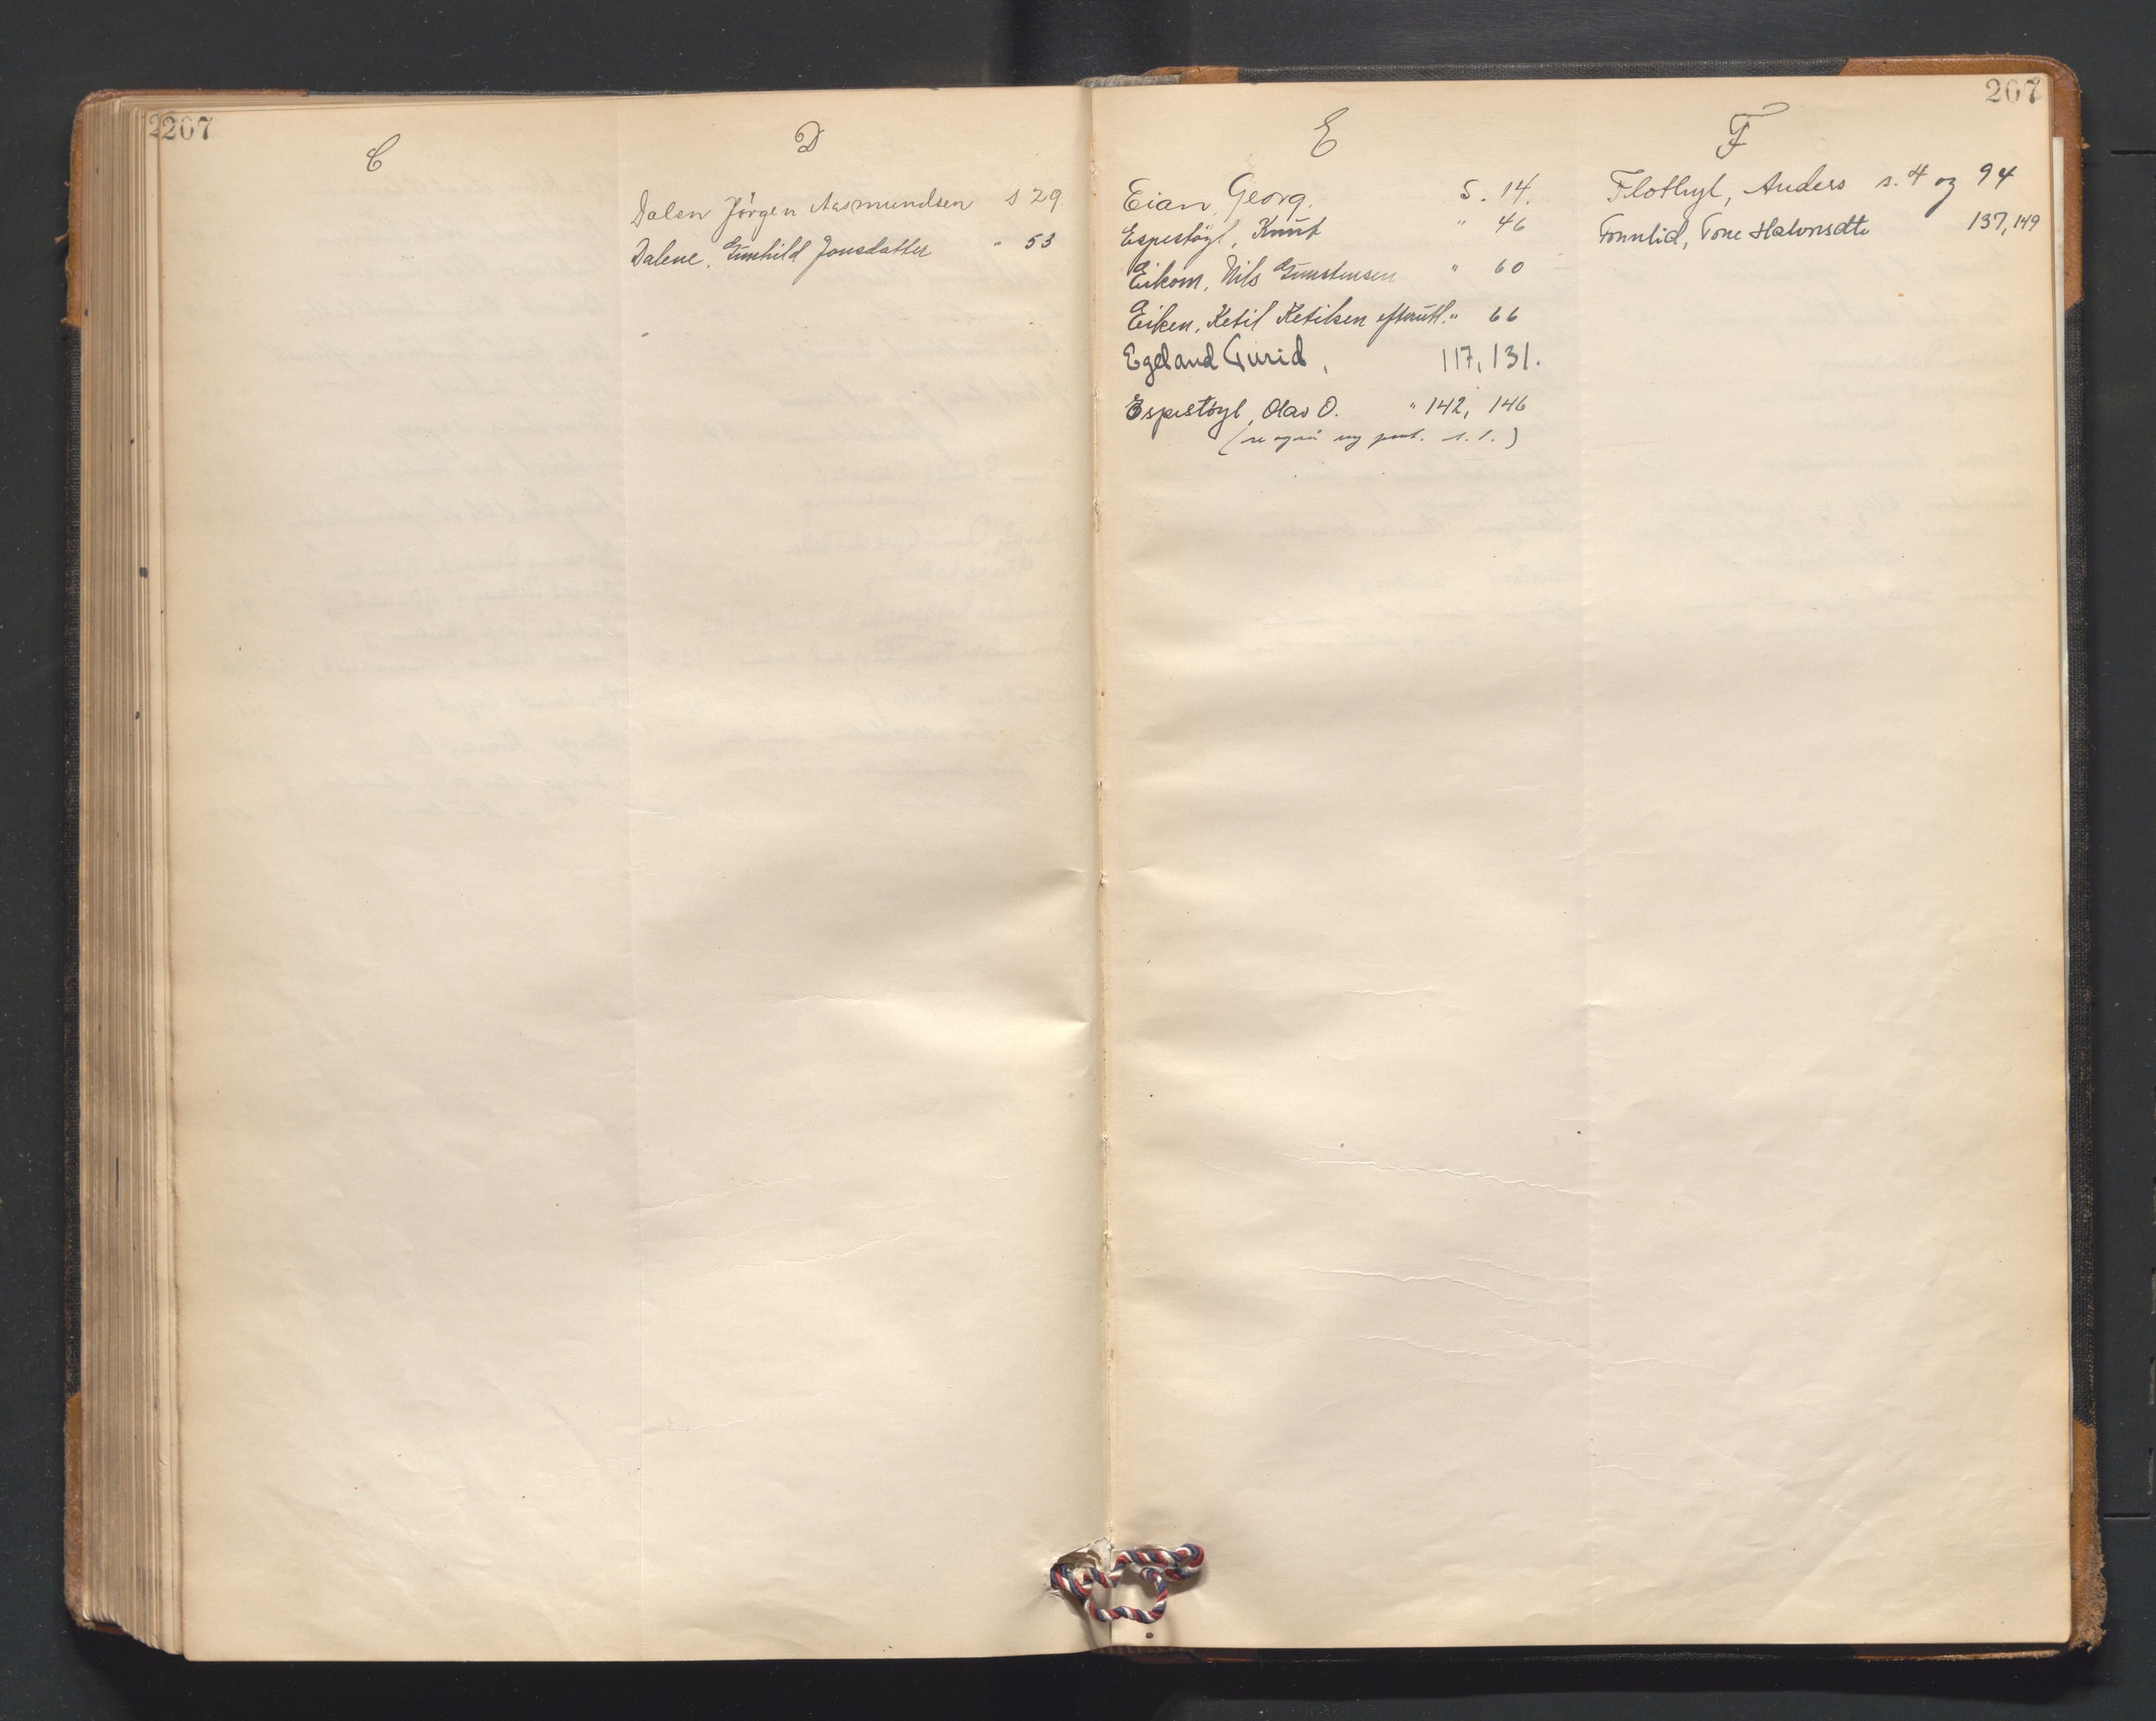 207
C
D
Dalen Jörgen Aasmundsen s 29.
Dalene, Gunhild Jonsdatter " 53
207
E
Eian, Georg. S. 14.
Espestöyl, Knut " 46
Eikom, Nils Gunstensen " 60
Eiken, Ketil Ketilsen " 66
Egeland Turid, 117, 131.
Espestöyl, Olav O. " 142, 146
(se også ny prot. s. 1.)
F
Flothyl, Anders s. 4 og 94
Fonnlid, Tone Halvorsdtr 137, 149